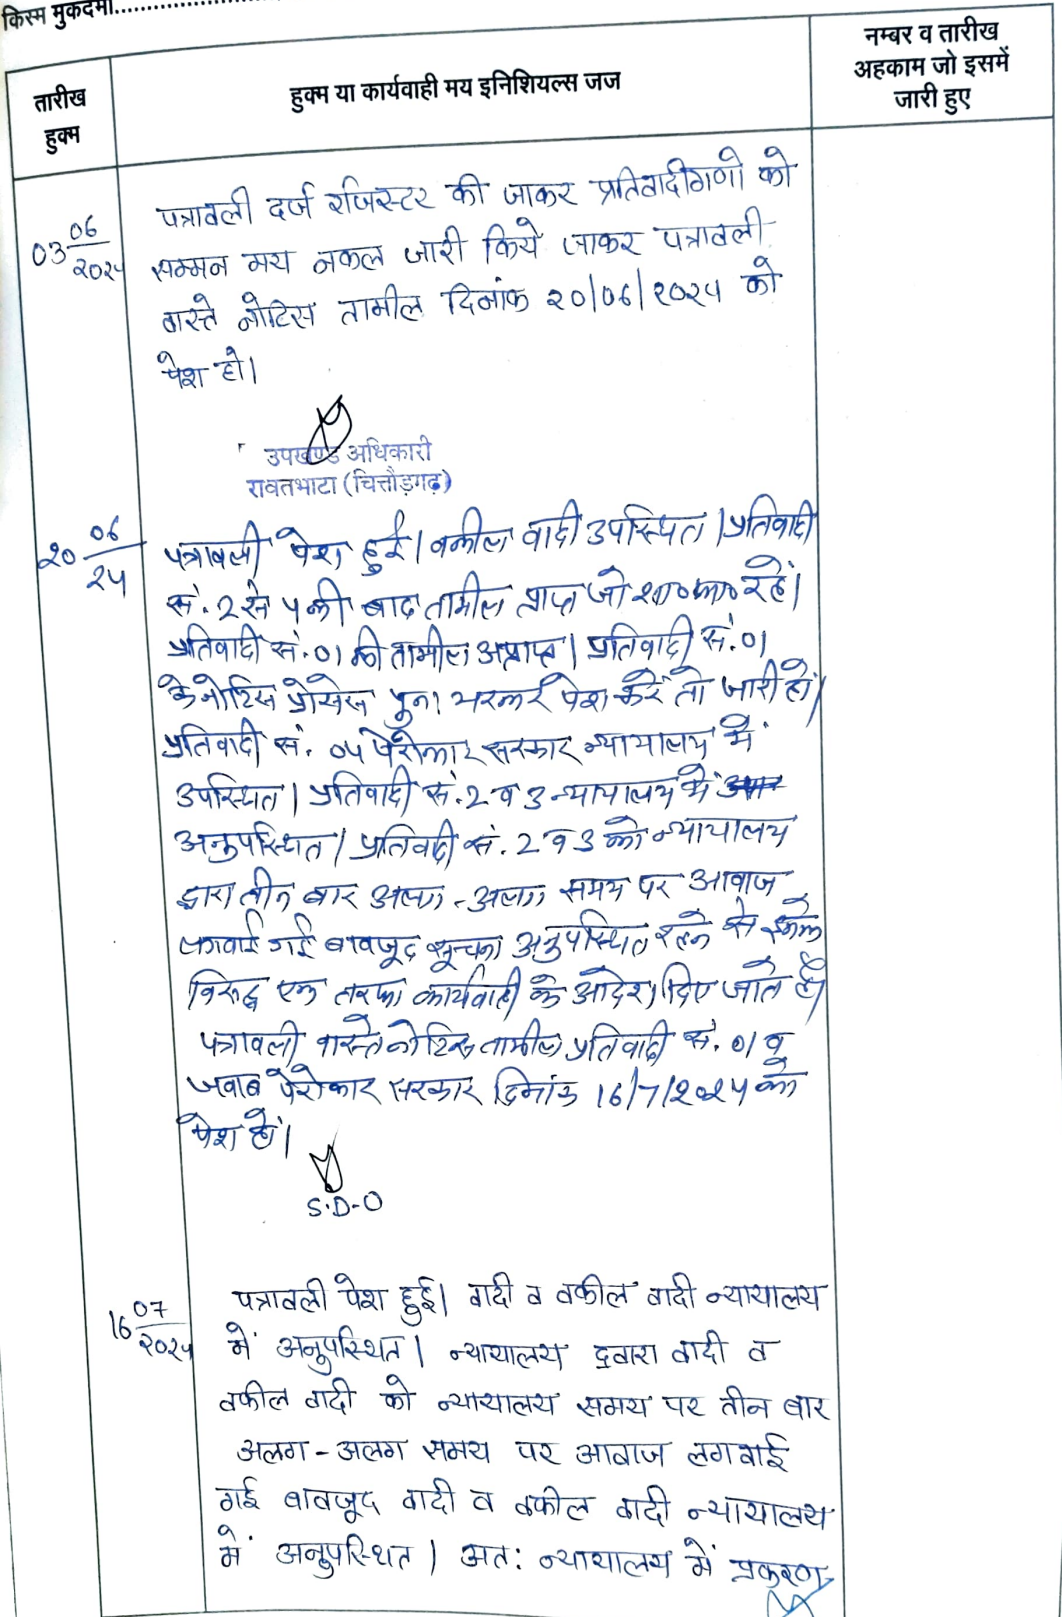 किस्म मुकदमा..................
तारीख
हुक्म
हुक्म या कार्यवाही मय इनिशियल्स जज
नम्बर व तारीख
अहकाम जो इसमें
जारी हुए
03 06/2024
पत्रावली दर्ज रजिस्टर की जाकर प्रतिवादीगणो को
सम्मन मय नकल जारी किये जाकर पत्रावली
वास्ते नोटिस तामील दिनांक 20/06/2024 को
पेश हो।
उपखण्ड अधिकारी
रावतभाटा (चित्तौड़गढ़)
20 06/24
पत्रावली पेश हुई। वकील वादी उपस्थित। प्रतिवादी
सं. 2 से 4 की बाद तामील प्राप्त जो शा0फा0 रहे।
प्रतिवादी सं. 01 की तामील अप्राप्त। प्रतिवादी सं. 01
के नोटिस प्रोसेस पुनः भरकर पेश करें तो जारी हो।
प्रतिवादी सं. 04 पेरोकार सरकार न्यायालय में
उपस्थित। प्रतिवादी सं. 2 व 3 न्यायालय में
अनुपस्थित। प्रतिवादी सं. 2 व 3 को न्यायालय
द्वारा तीन बार अलग-अलग समय पर आवाज
लगवाई गई बावजूद सूचना अनुपस्थित रहने से
विरुद्ध एक तरफा कार्यवाही के आदेश दिए जाते है।
पत्रावली वास्ते नोटिस तामील प्रतिवादी सं. 01 व
जवाब पेरोकार सरकार दिनांक 16/7/2024 को
पेश हो।
S.D-O
16 07/2024
पत्रावली पेश हुई। वादी व वकील वादी न्यायालय
में अनुपस्थित। न्यायालय द्वारा वादी व
वकील वादी को न्यायालय समय पर तीन बार
अलग-अलग समय पर आवाज लगवाई
गई बावजूद वादी व वकील वादी न्यायालय
में अनुपस्थित। अतः न्यायालय में प्रकरण